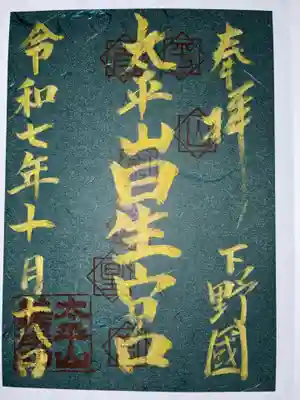 奉拝
下野國
太平山星宮
令和七年十月十八日
太平山